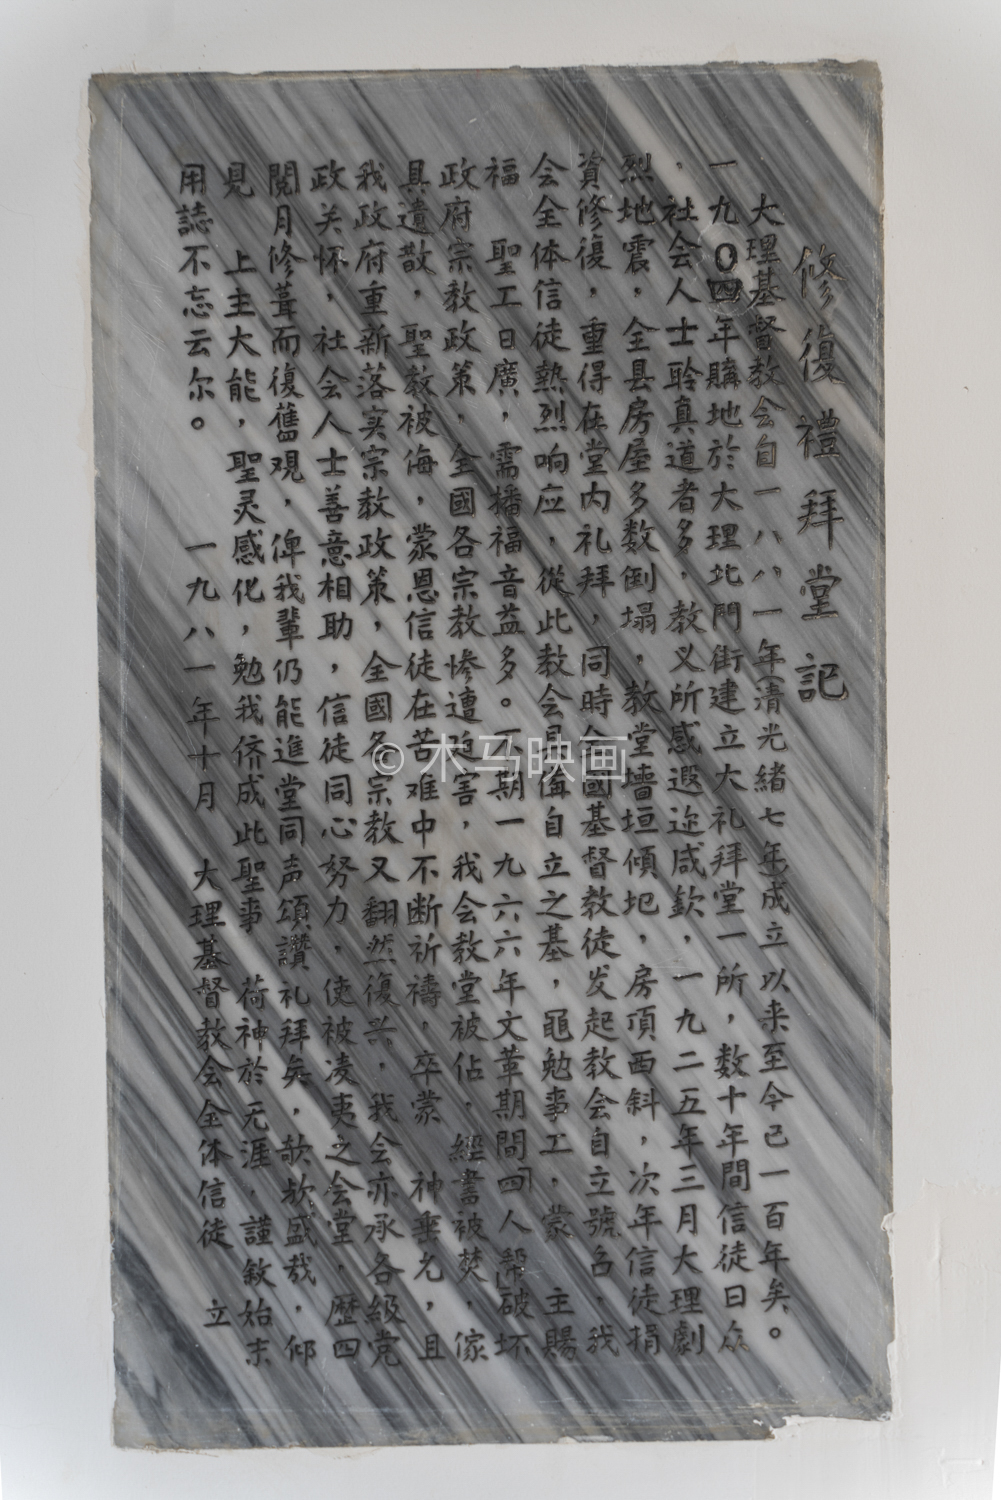 修復禮拜堂記
大理基督教会自一八八一年(清光緒七年)成立以来至今已一百年矣。
一九0四年購地於大理北門街建立大礼拜堂一所，数十年間信徒日众
，社会人士聆真道者多，教义所感遐迩咸欽，一九二五年三月大理劇
烈地震，全县房屋多数倒塌，教堂墻垣傾圯，房頂西斜，次年信徒捐
資修復，重得在堂内礼拜，同時全國基督教徒发起教会自立號召，我
会全体信徒热烈响应，從此教会具備自立之基，黾勉事工，蒙　主賜
福　聖工日廣，需播福音益多。不期一九六六年文革期間四人幫破坏
政府宗教政策，全國各宗教惨遭迫害，我会教堂被佔，經書被焚，傢
具遺散，聖教被侮，蒙恩信徒在苦难中不断祈禱，卒蒙　神垂允，且
我政府重新落实宗教政策，全國各宗教又翻然復兴，我会亦承各級党
政关怀，社会人士善意相助，信徒同心努力，使被凌夷之会堂，歷四
閱月修葺而復舊观，俾我輩仍能進堂同声頌讚礼拜矣，猗欤盛哉，仰
見　上主大能，聖灵感化，勉我侪成此聖事　荷神於无涯，謹敘始末
用誌不忘云尔。　一九八一年十月　大理基督教会全体信徒　立
© 木马映画